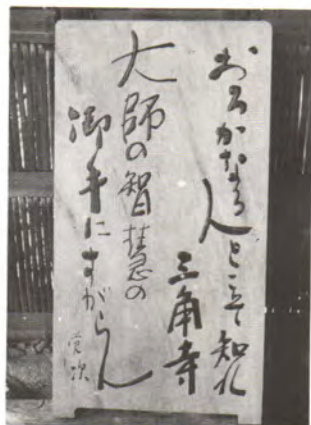 おろかなる人とこそ知れ
三角寺
大師の智慧の
御手にすがらん